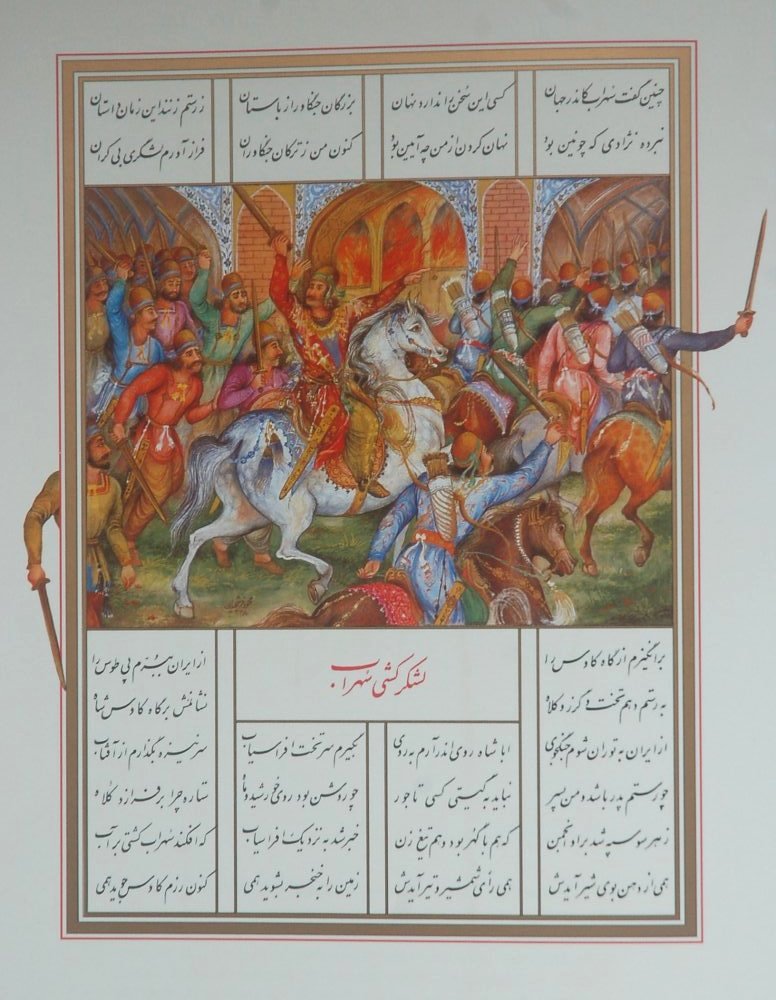 چنین گفت سهراب کاندر جهان کسی این سخن را ندارد نهان بزرگان جنگاور از باستان ز رستم زنند این زمان داستان
نبرده نژادی که چونین بود نهان کردن از من چه آیین بود کنون من ز ترکان جنگاوران فراز آورم لشگری بی کران
برانگیزم از گاه کاوس را از ایران ببرم پی طوس را
به رستم دهم تخت و گرز و کلاه نشانمش بر گاه کاوس شاه
لشکر کشی سهراب
از ایران به توران شوم جنگجوی ابا شاه روی اندر آرم به روی بگیرم سر تخت افراسیاب سر نیزه بگذارم از آفتاب
چو رستم پدر باشد و من پسر نباید به گیتی کسی تاجور چو روشن بود روی خورشید و ماه ستاره چرا برفرازد کلاه
ز هر سو سپه شد براو انجمن که هم با گهر بود و هم تیغ زن خبر شد به نزدیک افراسیاب که افکند سهراب کشتی بر آب
همی از دهن بوی شیر آیدش همی رأی شمشیر و تیر آیدش زمین را به خنجر بشوید همی کنون رزم کاوس جوید همی